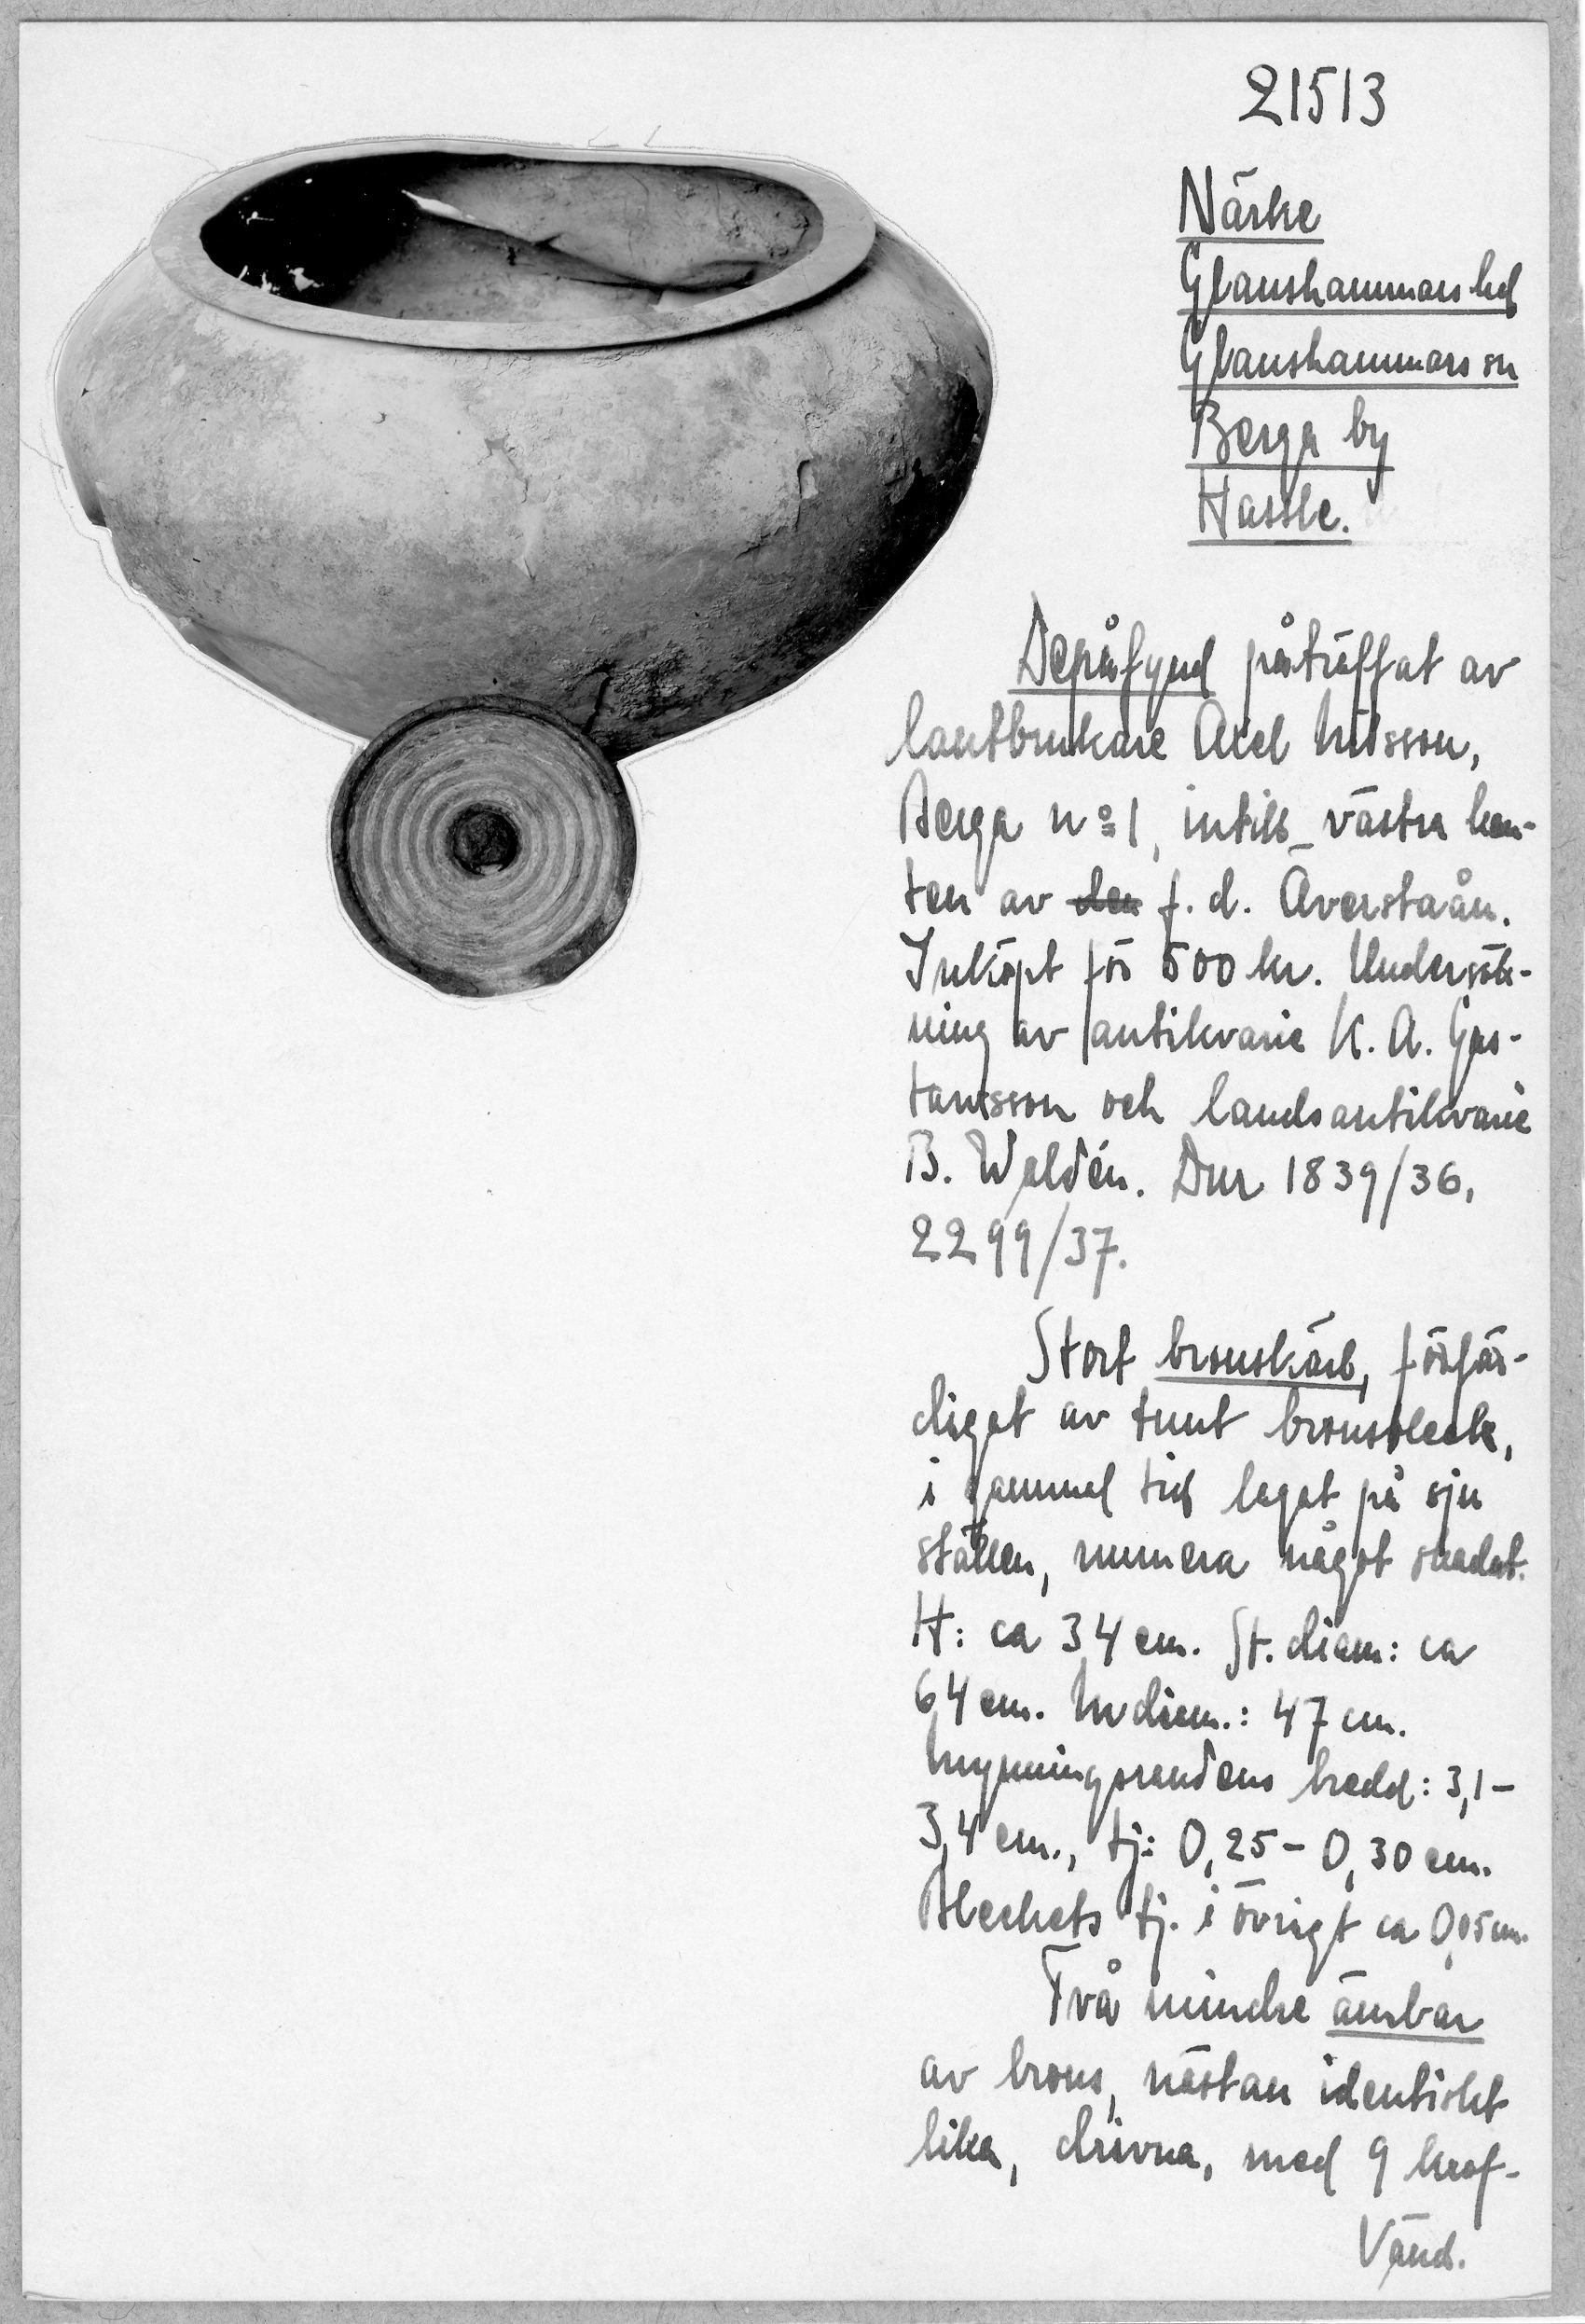 21513
Närke
Glanshammars hd
Glanshammars sn
Berga by
Hassle.
Depåfynd påträffat av
lantbrukare Axel Nilsson,
Berga nº 1, intill västra kan-
ten av den f. d. Äverstaån.
Inköpt för 500 kr. Undersök-
ning av antikvarie K. A. Gus-
tawsson och landsantikvarie
B. Waldén. Dnr 1839/36,
2299/37.
Stort bronskärl, förfär-
digat av tunt bronsbleck,
i gammal tid lagat på sju
ställen, numera något skadat.
H: ca 34 cm. St. diam: ca
64 cm. M diam.: 47 cm.
Mynningsrandens bredd: 3,1-
3,4 cm., tj: 0,25-0,30 cm.
Bleckets tj. i övrigt ca 0,05 cm.
Två mindre ämbar
av brons, nästan identiskt
lika, drivna, med 9 kraf-
Vänd.